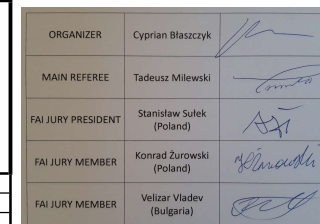 ORGANIZER Cyprian Błaszczyk
MAIN REFEREE Tadeusz Milewski
FAI JURY PRESIDENT Stanisław Sułek
(Poland)
FAI JURY MEMBER Konrad Żurowski
(Poland)
FAI JURY MEMBER Velizar Vladev
(Bulgaria)